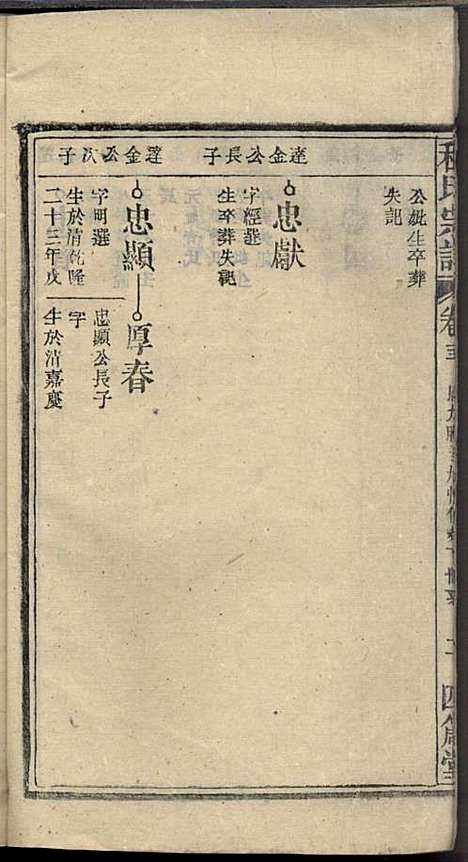 程氏宗譜
卷
公妣生卒葬
失記
達金公長子
忠獻
字經選
生卒葬失記
達金公次子
忠顯
字明選
生於清乾隆
二十三年戊
厚春
忠顯公長子
字
生於清嘉慶